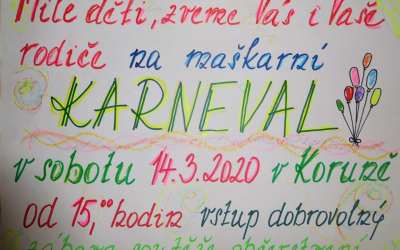 Milé děti, zveme Vás i Vaše
rodiče na maškarní
KARNEVAL
v sobotu 14.3.2020 v Koruně
od 15,⁰⁰ hodin vstup dobrovolný
zábava soutěže občerstvení